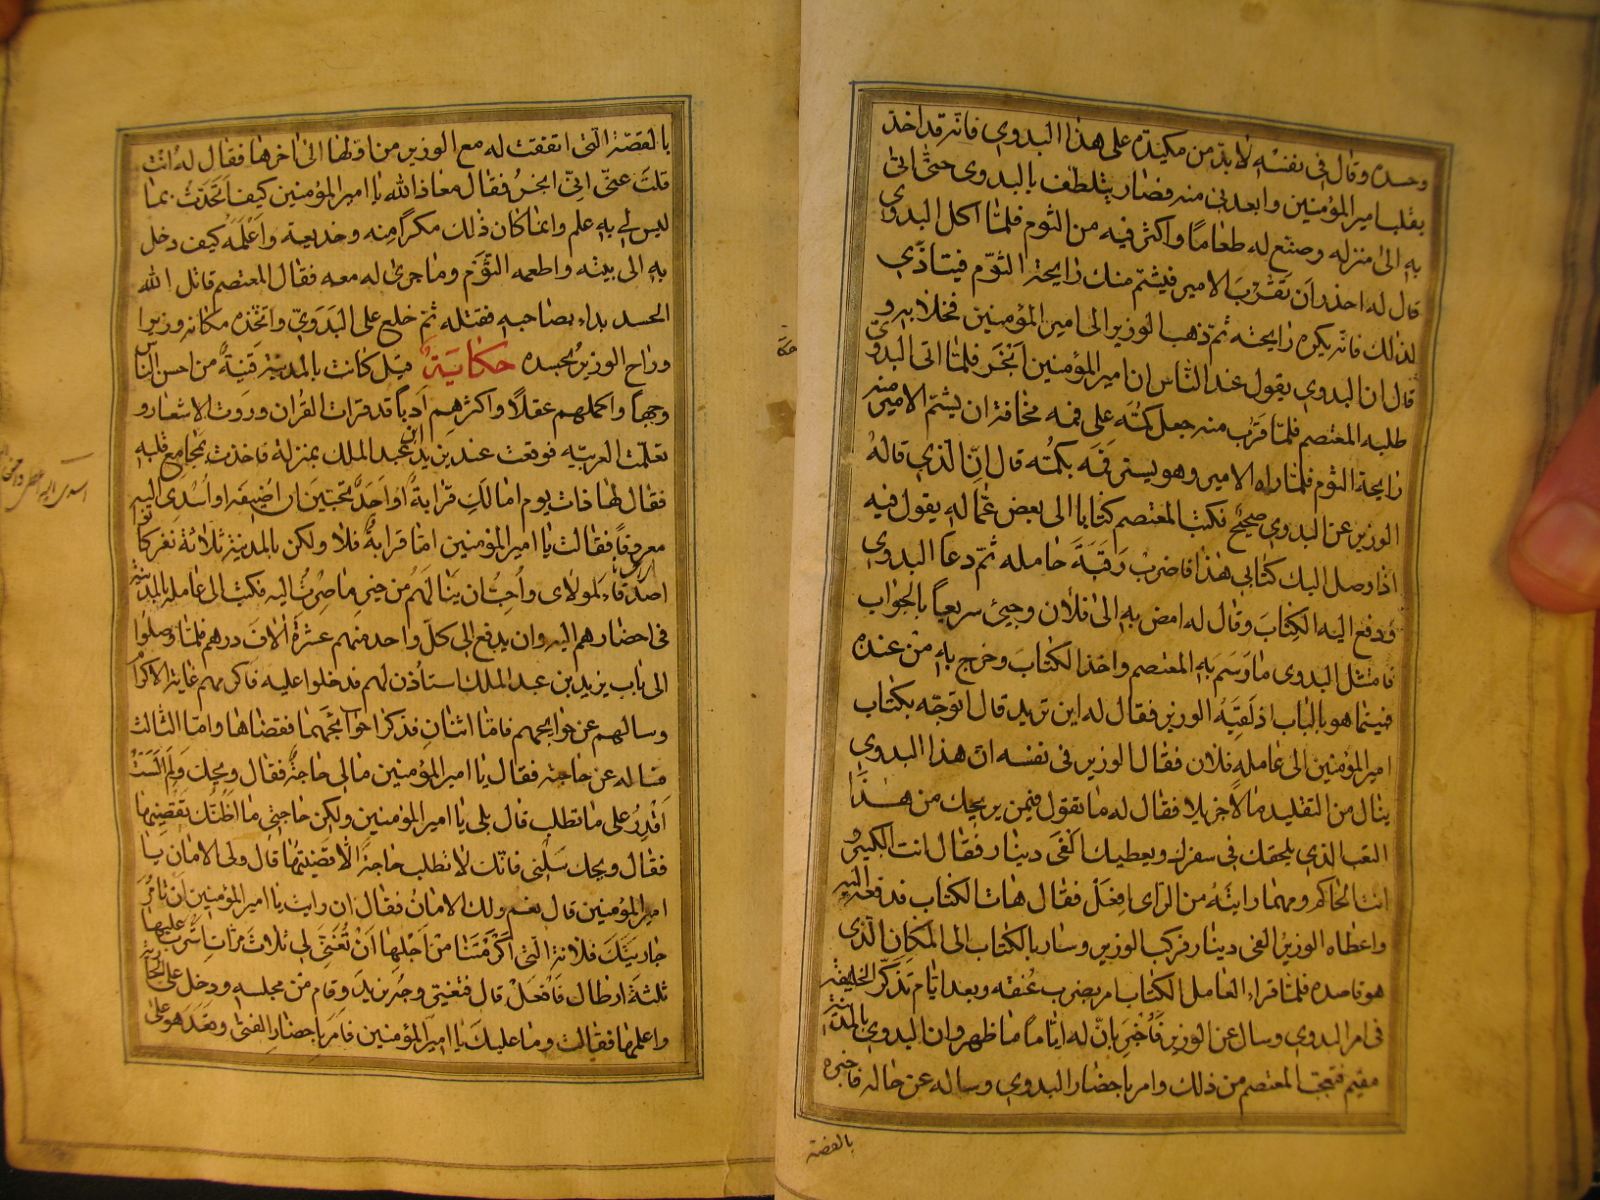 وحسده وقال في نفسه لا بد من مكيدة على هذا البدوي فانه قد اخذ
بقلب امير المؤمنين وابعدني منه فصار يتلطف بالبدوي حتى اتى
به الى منزله وصنع له طعاما واكثر فيه من الثوم فلما اكل البدوي
قال له احذر ان تقرب الامير فيشم منك رايحة الثوم فيتاذي
لذلك فانه يكره رايحته ثم ذهب الوزير الى امير المؤمنين فخلا به و
قال ان البدوي يقول عند الناس ان امير المؤمنين ابخر فلما اتى البدوي
طلبه المعتصم فلما قرب منه جعل كمه على فمه مخافة ان يشم الامير منه
رايحة الثوم فلما راه الامير وهو يستر فمه بكمه قال ان الذي قاله
الوزير عن البدوي صحيح فكتب المعتصم كتابا الى بعض عماله يقول فيه
اذا وصل اليك كتابي هذا فاضرب رقبة حامله ثم دعا البدوي
ودفع اليه الكتاب وقال له امض به الى فلان وجئ سريعا بالجواب
فامتثل البدوي ما رسم به المعتصم واخذ الكتاب وخرج به من عنده
فبينما هو بالباب اذ لقيه الوزير فقال له اين تريد قال اتوجه بكتاب
امير المؤمنين الى عامله فلان فقال الوزير في نفسه ان هذا البدوي
ينال من التقليد مالا جزيلا فقال له ما تقول فيمن يريحك من هذا
التعب الذي يلحقك في سفرك ويعطيك الفي دينار فقال انت الكبير و
انت الحاكم ومهما رايته من الراى افعل فقال هات الكتاب فدفعه اليه
واعطاه الوزير الفي دينار فركب الوزير وسار بالكتاب الى المكان الذي
هو قاصده فلما قراء العامل الكتاب امر بضرب عنقه وبعد ايام تذكر الخليفة
في امر البدوي وسال عن الوزير فاخبر بان له اياما ما ظهر وان البدوي بالمدينة
مقيم فتعجب المعتصم من ذلك وامر باحضار البدوي وساله عن حاله فاخبره
بالقصة
بالقصة التي اتفقت له مع الوزير من اولها الى اخرها فقال له انت
قلت عني اني ابخر فقال معاذ الله يا امير المؤمنين كيف اتحدث بما
ليس لي به علم وانما كان ذلك مكرا منه وخديعة واعلمه كيف دخل
به الى بيته واطعمه الثوم وما جرى له معه فقال المعتصم قاتل الله
الحسد بداء بصاحبه فقتله ثم خلع على البدوي واتخذه مكانه وزيرا
وراح الوزير بحسده حكاية قيل كانت بالمدينة قينة من احسن الناس
وجها واكملهم عقلا واكثرهم ادبا قد قرات القران وروت الاشعار و
تعلمت العربيه فوقعت عند يزيد ابن عبد الملك بمنزلة فاخذت بمجامع قلبه
فقال لها ذات يوم اما لك قرابة او احد تحبين ان اضيفه او اسدي اليه
معروفا فقالت يا امير المؤمنين اما قرابة فلا ولكن بالمدينة ثلاثة نفر كانوا
اصدقاء لمولاي واحب ان ينالهم من خير ما صرت اليه فكتب الى عامله بالمدينة
في احضارهم اليه وان يدفع الى كل واحد منهم عشرة الاف درهم فلما وصلوا
الى باب يزيد بن عبد الملك استاذن لهم فدخلوا عليه فاكرمهم غاية الاكرام
وسالهم عن حوايجهم فاما اثنان فذكرا حوائجهما فقضاها واما الثالث
فساله عن حاجته فقال يا امير المؤمنين مالى حاجة فقال ويحك ولم الست
اقدر على ما تطلب قال بلى يا امير المؤمنين ولكن حاجتي ما اظنك تقضيها
فقال ويحك سلني فانك لا تطلب حاجة الا قضيتها قال ولى الامان يا
امير المؤمنين قال نعم ولك الامان فقال ان رايت يا امير المؤمنين ان تامر
جاريتك فلانة التي اكرمتنا من اجلها ان تغني لي ثلاث مرات اشرب عليها
ثلثة ارطال فافعل قال فتغير وجه يزيد وقام من مجلسه ودخل على الجارية
واعلمها فقالت وما عليك يا امير المؤمنين فامر باحضار الفتى وقعد هو على